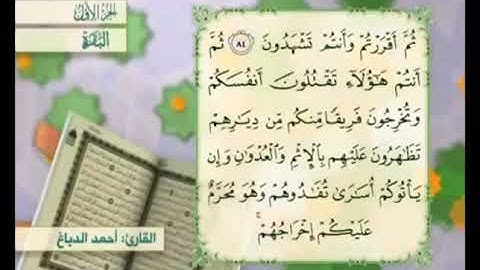 الجزء الأول
البقرة
ثُمَّ أَقْرَرْتُمْ وَأَنتُمْ تَشْهَدُونَ ٨٤ ثُمَّ
أَنتُمْ هَٰٓؤُلَآءِ تَقْتُلُونَ أَنفُسَكُمْ
وَتُخْرِجُونَ فَرِيقًا مِّنكُم مِّن دِيَٰرِهِمْ
تَظَٰهَرُونَ عَلَيْهِم بِٱلْإِثْمِ وَٱلْعُدْوَٰنِ وَإِن
يَأْتُوكُمْ أُسَٰرَىٰ تُفَٰدُوهُمْ وَهُوَ مُحَرَّمٌ
عَلَيْكُمْ إِخْرَاجُهُمْ ۚ
القارئ: أحمد الدباغ